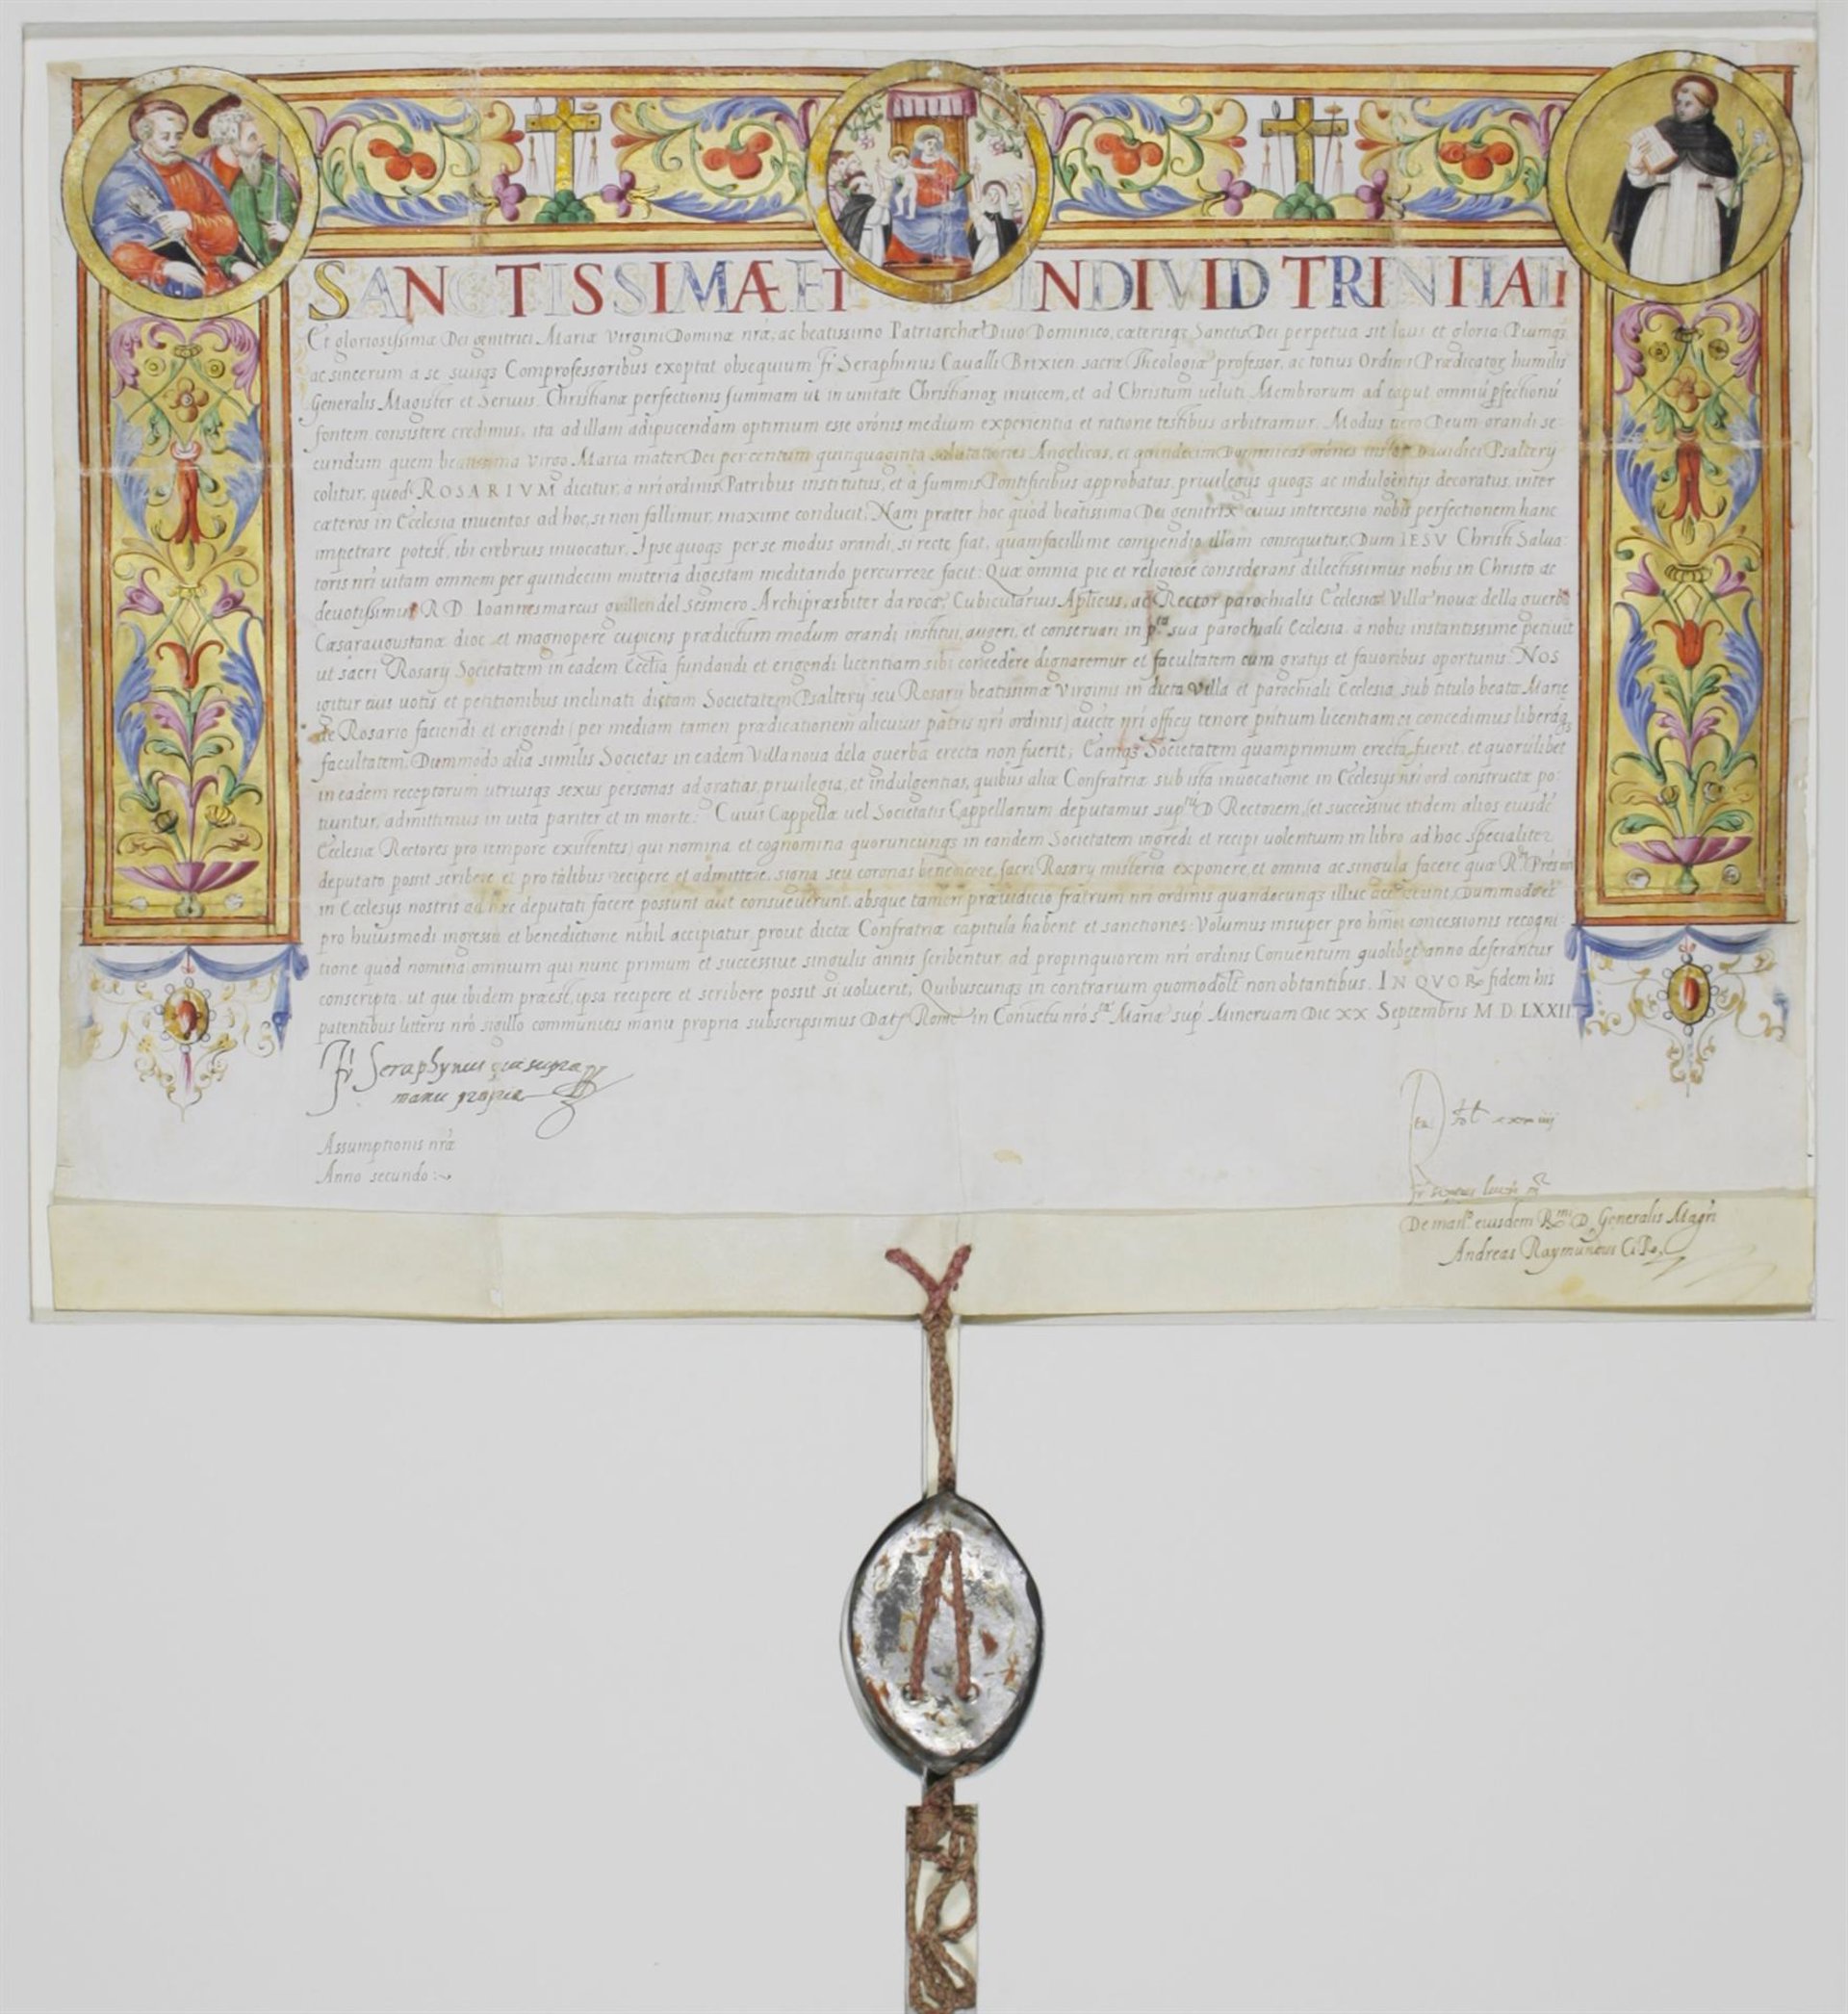 SANCTISSIMÆ ET INDIVID TRINITATI
Et gloriosissimæ Dei genitrici Mariæ Virgini Dominæ nræ, ac beatissimo Patriarchæ Diuo Dominico, cæterisqz Sanctis Dei perpetua sit laus et gloria. Piumqz
ac sincerum a se suisqz Comprofessoribus exoptat obsequium fr Seraphinus Caualli Brixien sacræ Theologiæ professor, ac totius Ordinis Prædicator humilis
Generalis Magister et Seruus. Christianæ perfectionis summam ut in unitate Christianor inuicem, et ad Christum ueluti Membrorum ad caput omniũ pfectionũ
fontem consistere credimus, ita ad illam adipiscendam optimum esse orõnis medium experientia et ratione testibus arbitramur. Modus uero Deum orandi se:
cundum quem beatissima Virgo Maria mater Dei per centum quinquaginta salutationes Angelicas, et quindecim Dominicas orõnes instar Dauidici Psalterij
colitur, quod ROSARIVM dicitur, a nri ordinis Patribus institutus, et a summis Pontificibus approbatus, priuilegijs quoqz ac indulgentijs decoratus, inter
cæteros in Ecclesia inuentos ad hoc, si non fallimur, maxime conducit. Nam præter hoc quod beatissima Dei genitrix cuius intercessio nobis perfectionem hanc
impetrare potest, ibi crebrius inuocatur, Ipse quoqz per se modus orandi, si recte fiat, quam facillime compendio illam consequitur, Dum IESV Christi Salua:
toris nri uitam omnem per quindecim misteria digestam meditando percurrere facit: Quæ omnia pie et religiose considerans dilectissimus nobis in Christo ac
deuotissimus R D Ioannes marcus guillen del sesmero Archipræsbiter da roca, Cubicularius Aplicus, ac Rector parochialis Ecclesiæ Villæ nouæ della guerba
Cæsaraugustanæ dioc et magnopere cupiens prædictum modum orandi institui, augeri, et conseruari in p.ta sua parochiali Ecclesia, a nobis instantissime petiuit
ut sacri Rosarij Societatem in eadem Ecclia fundandi et erigendi licentiam sibi concedere dignaremur et facultatem cum gratijs et fauoribus oportunis. NOS
igitur eius uotis et petitionibus inclinati dictam Societatem Psalterij seu Rosarij beatissimæ Virginis in dicta Villa et parochiali Ecclesia, sub titulo beatæ Mariæ
de Rosario faciendi et erigendi (per mediam tamen prædicationem alicuius patris nri ordinis) aucte nri officij tenore pntium licentiam ei concedimus liberaqz
facultatem. Dummodo alia similis Societas in eadem Villanoua dela guerba erecta non fuerit; Eamqz Societatem quamprimum erecta fuerit, et quorũlibet
in eadem receptorum utriusqz sexus personas ad gratias, priuilegia, et indulgentias, quibus aliæ Confratriæ sub ista inuocatione in Ecclesijs nri ord. constructæ po:
tiuntur, admittimus in uita pariter et in morte: Cuius Cappellæ uel Societatis Cappellanum deputamus sup.tũ D Rectorem, (et successiue itidem alios eiusdẽ
Ecclesiæ Rectores pro tempore existentes) qui nomina et cognomina quorumcunqz in eandem Societatem ingredi et recipi uolentium in libro ad hoc specialiter
deputato possit scribere et pro talibus recipere et admittere, signa seu coronas benedicere, sacri Rosarij misteria exponere, et omnia ac singula facere quæ R.di Pres nri
in Ecclesijs nostris ad hæc deputati facere possunt aut consueuerunt absque tamen præiudicio fratrum nri ordinis quandocunqz illuc accesserint, Dummodo et
pro huiusmodi ingressu et benedictione nihil accipiatur prout dictæ Confratriæ capitula habent et sanctiones: Volumus insuper pro hmoi concessionis recogni:
tione quod nomina omnium qui nunc primum et successiue singulis annis scribentur ad propinquiorem nri ordinis Conuentum quolibet anno deferantur
conscripta, ut qui ibidem præest, ipsa recipere et scribere possit si uoluerit, Quibuscunqz in contrarium quomodolt non obtantibus. IN QVOR fidem his
patentibus litteris nro sigillo communitis manu propria subscripsimus Dat Rome in Conuẽtu nro S.tæ Mariæ sup Mineruam Die XX Septembris M D LXXII
fr Seraphynus qui supra
manu propria
Assumptionis nræ
Anno secundo:
De man.to eiusdem R.mi D Generalis Magri
Andreas Raymundus